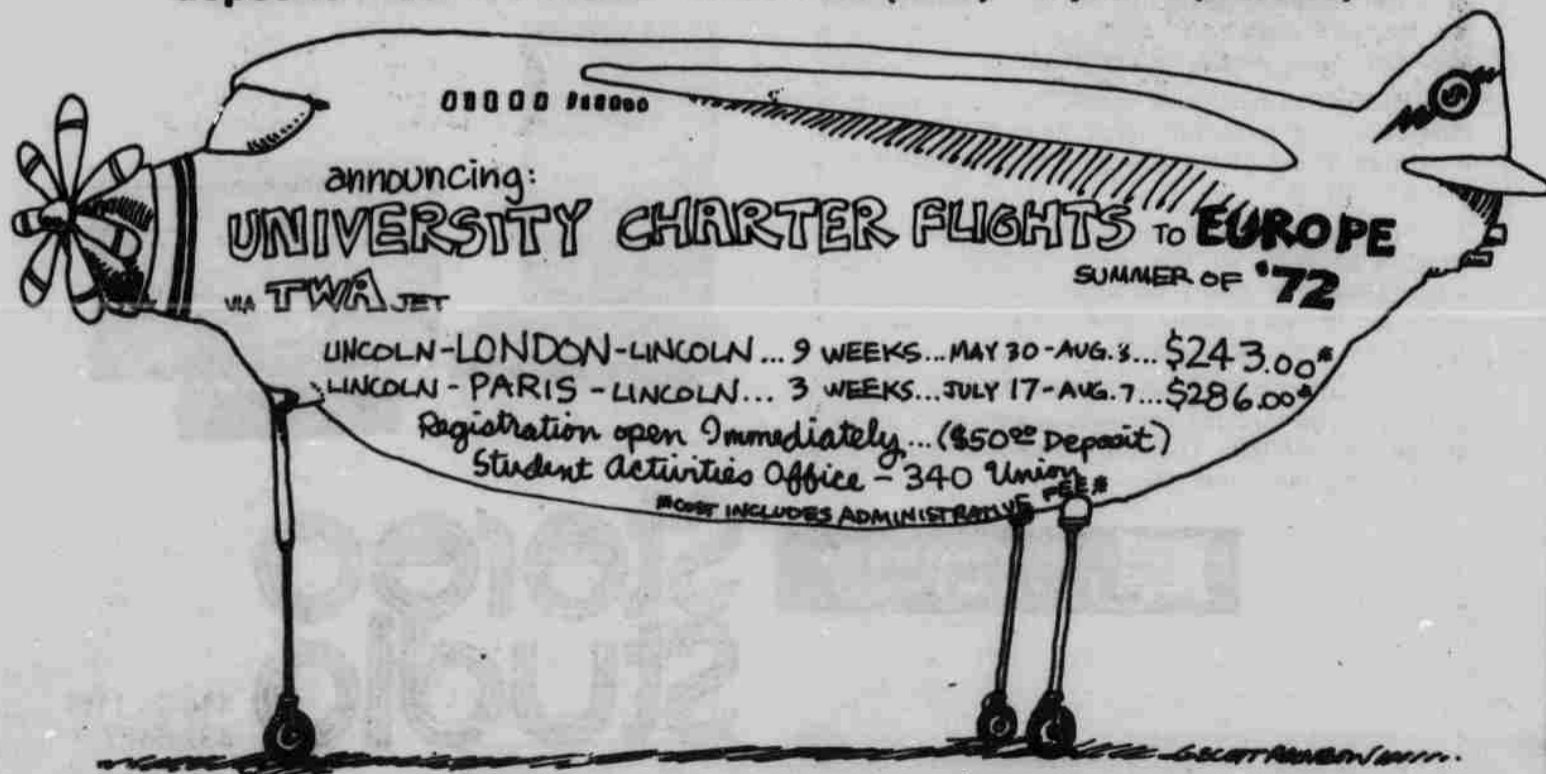 announcing:
UNIVERSITY CHARTER FLIGHTS TO EUROPE
SUMMER OF '72
VIA TWA JET
LINCOLN-LONDON-LINCOLN... 9 WEEKS...MAY 30-AUG. 3... $243.00*
LINCOLN - PARIS - LINCOLN... 3 WEEKS...JULY 17-AUG. 7...$286.00*
Registration open Immediately... ($50.00 Deposit)
Student Activities Office - 340 Union
*COST INCLUDES ADMINISTRATIVE FEE*